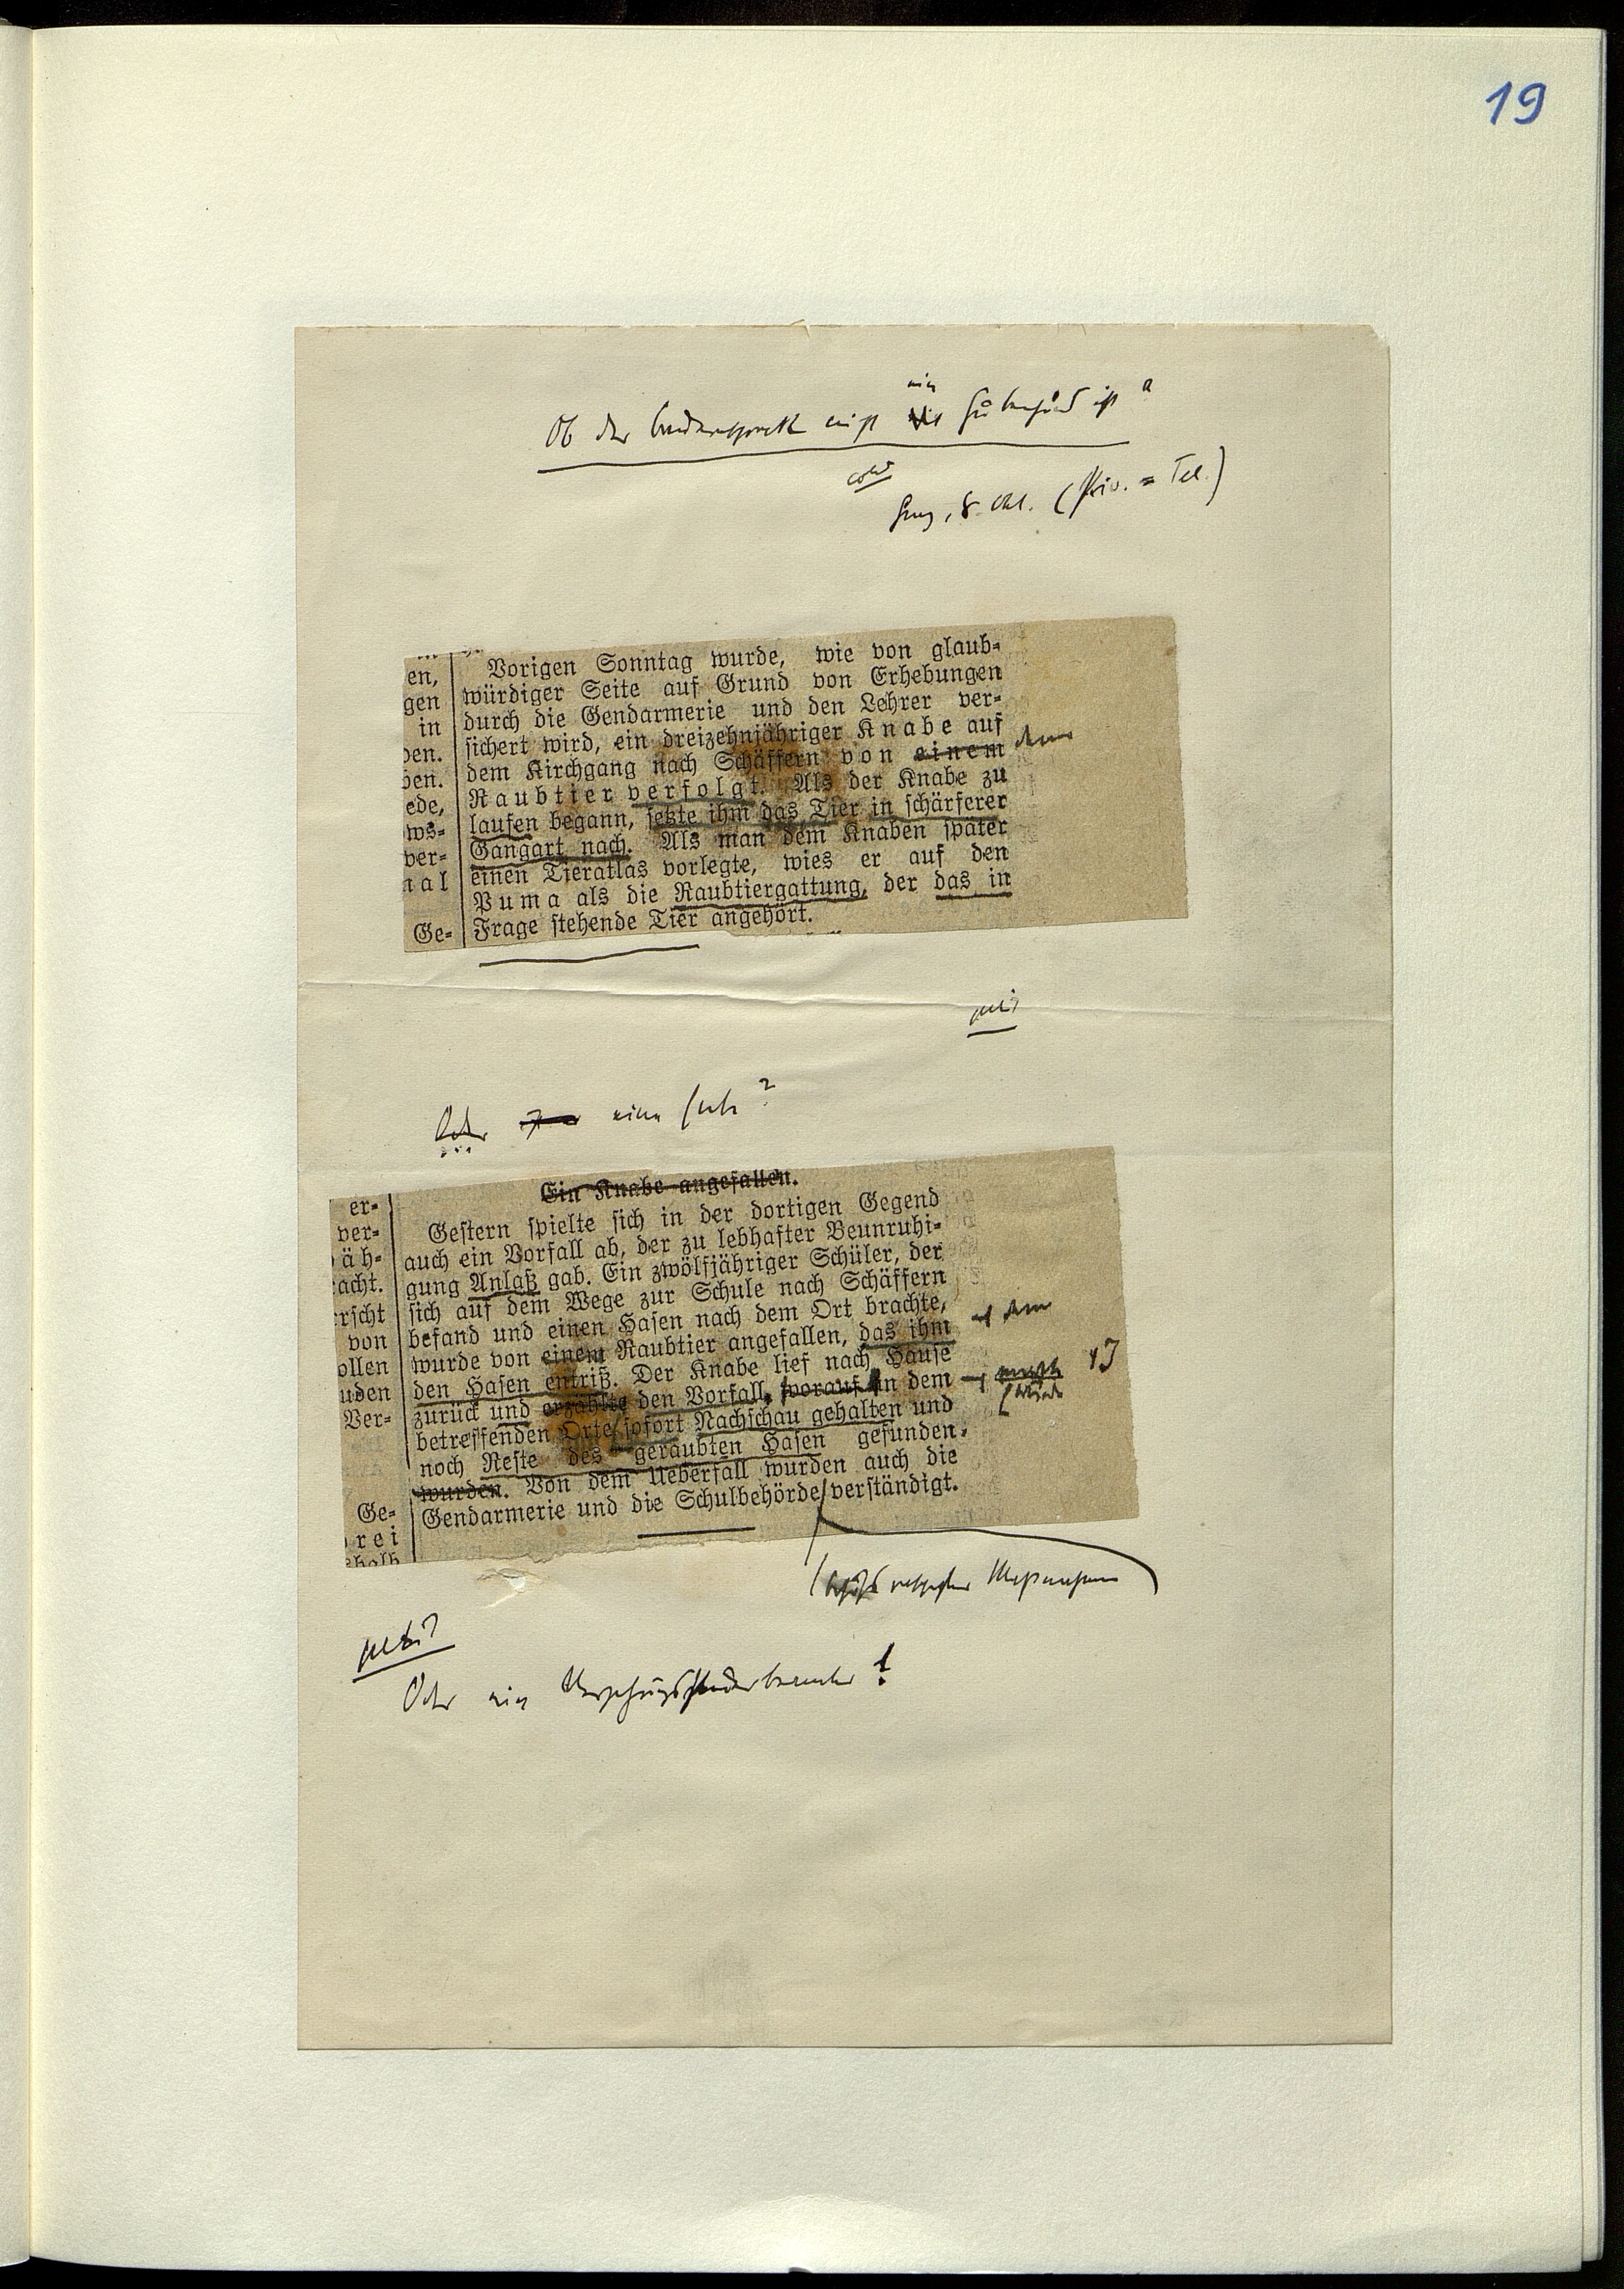 19
Ob der
ein
Graz, 8. Okt. (Priv.=Tel.)
en,
gen
in
ben.
ben.
ede,
ws=
ver=
nal
Ge=
Vorigen Sonntag wurde, wie von glaub=
würdiger Seite auf Grund von Erhebungen
durch die Gendarmerie und den Lehrer ver=
sichert wird, ein dreizehnjähriger Knabe auf
dem Kirchgang nach Schäffern von einem dem
Raubtier verfolgt. Als der Knabe zu
laufen begann, setzte ihm das Tier in schärferer
Gangart nach. Als man dem Knaben später
einen Tieratlas vorlegte, wies er auf den
Puma als die Raubtiergattung, der das in
Frage stehende Tier angehört.
Oder eine
er=
ver=
äh=
acht.
rrscht
von
ollen
uden
Ver=
Ge=
rei
shalb
Ein Knabe angefallen.
Gestern spielte sich in der dortigen Gegend
auch ein Vorfall ab, der zu lebhafter Beunruhi=
gung Anlaß gab. Ein zwölfjähriger Schüler, der
sich auf dem Wege zur Schule nach Schäffern
befand und einen Hasen nach dem Ort brachte,
wurde von einem Raubtier angefallen, das ihm dem
den Hasen entriß. Der Knabe lief nach Hause
zurück und erzählte den Vorfall, worauf in dem
betreffenden Orte sofort Nachschau gehalten und
noch Reste des geraubten Hasen gefunden
wurden. Von dem Ueberfall wurden auch die
Gendarmerie und die Schulbehörde verständigt.
Oder ein